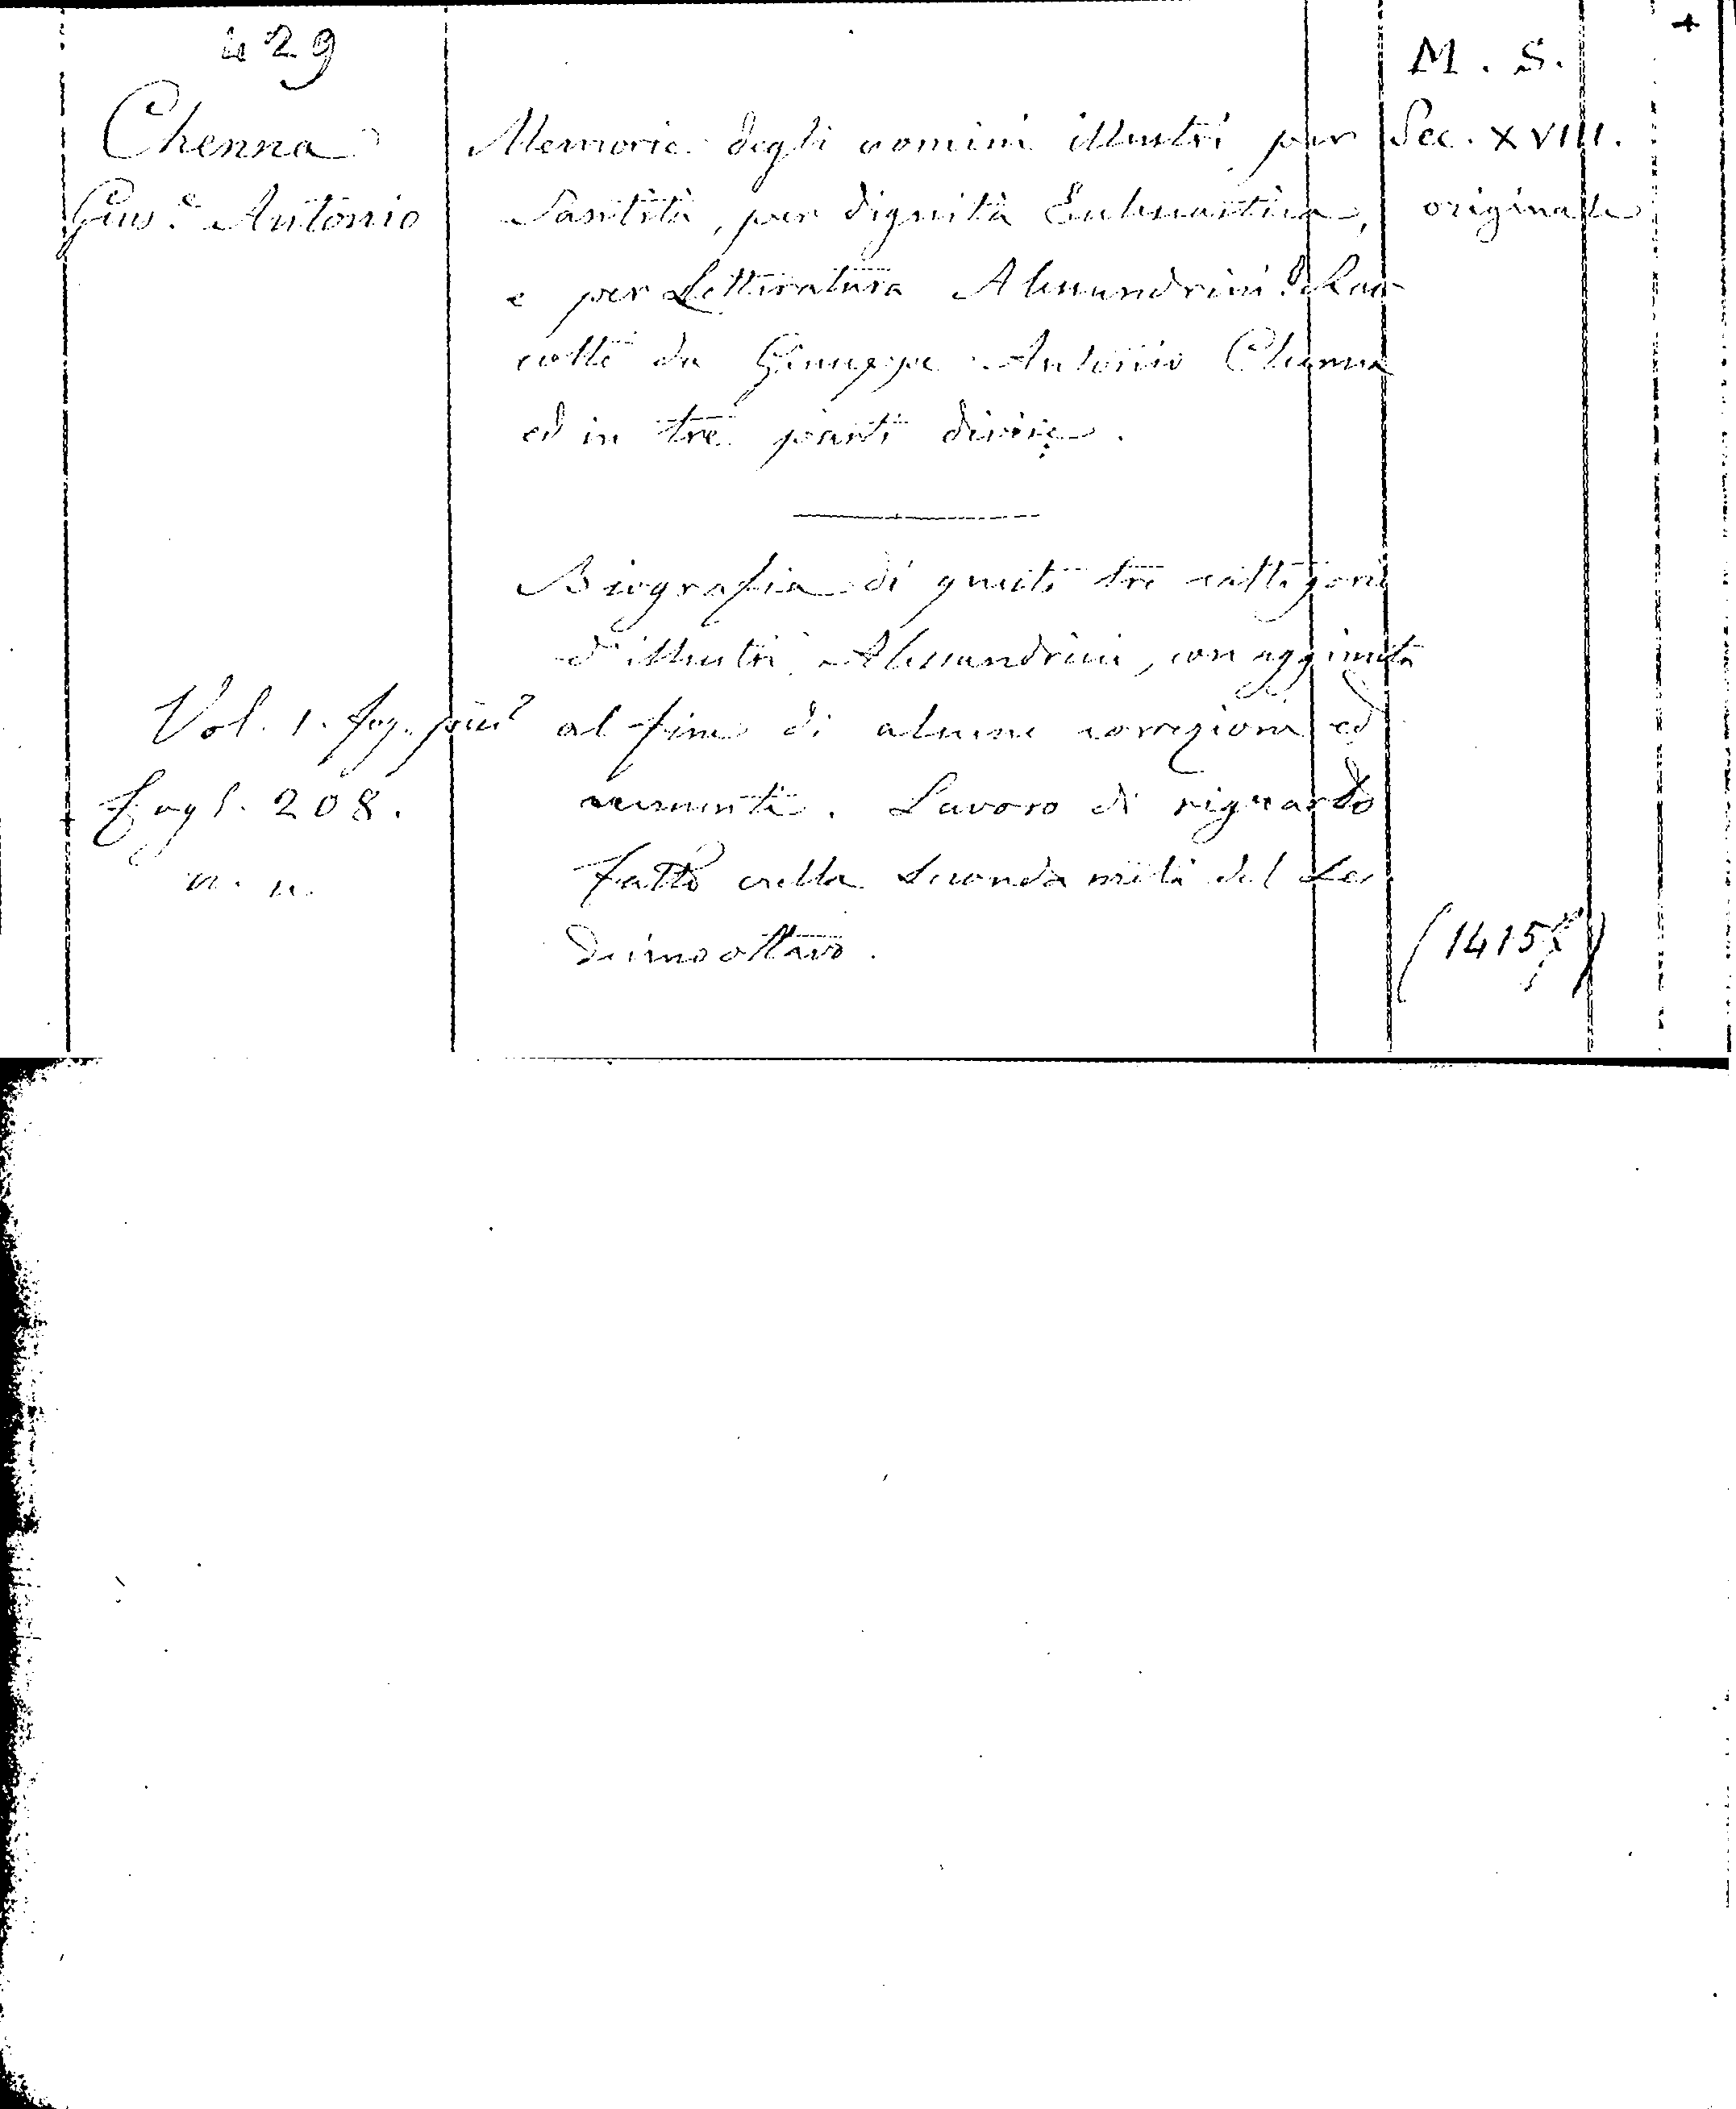 429
M. S.
+
Chenna
Gius.e Antonio
Memorie degli uomini illustri per
Santità, per dignità Eclesiastica,
e per Letteratura Alessandrini Rac-
colte da Giuseppe Antonio Chenna
ed in tre parti divise.
Sec. XVIII.
originale
Biografia di queste tre cattegorie
d'illustri Alessandrini, con aggiunta
al fine di alcune correzioni ed
aumenti. Lavoro di riguardo
fatto nella seconda metà del Sec.
Decimottavo.
Vol. 1. fog. picc°
Fogl. 208.
n. n.